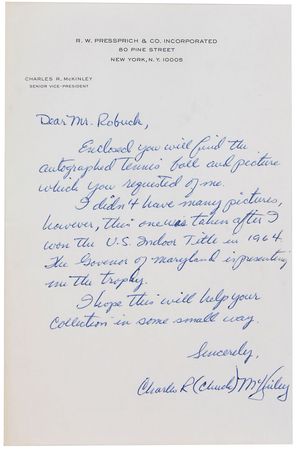 R. W. PRESSPRICH & CO. INCORPORATED
80 PINE STREET
NEW YORK, N.Y. 10005
CHARLES R. McKINLEY
SENIOR VICE-PRESIDENT
Dear Mr. Robuck,
Enclosed you will find the
autographed tennis ball and picture
which you requested of me.
I didn't have many pictures,
however, this one was taken after I
won the U.S. Indoor Title in 1964.
The Govenor of Maryland is presenting
me the trophy.
I hope this will help your
collection in some small way.
Sincerely,
Charles R (Chuck) McKinley